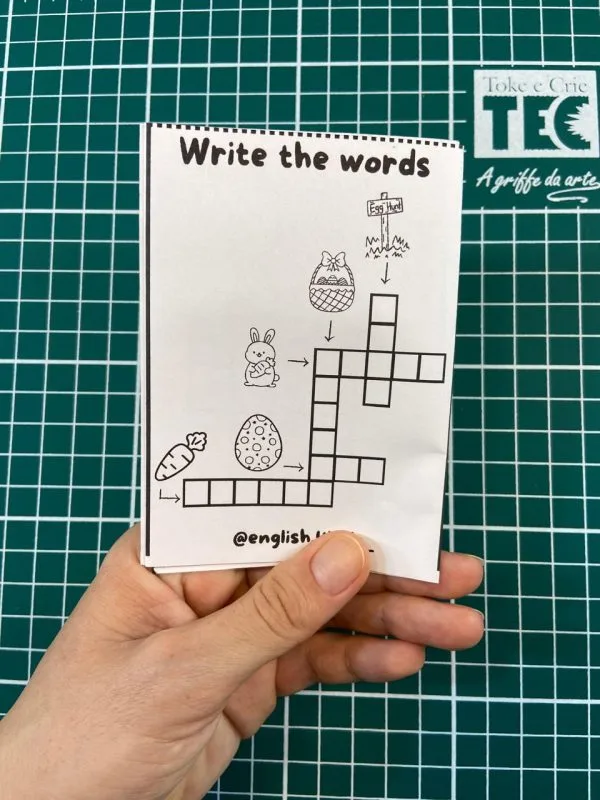 Toke e Crie
TEC
A griffe da arte
Write the words
Egg Hunt
@english